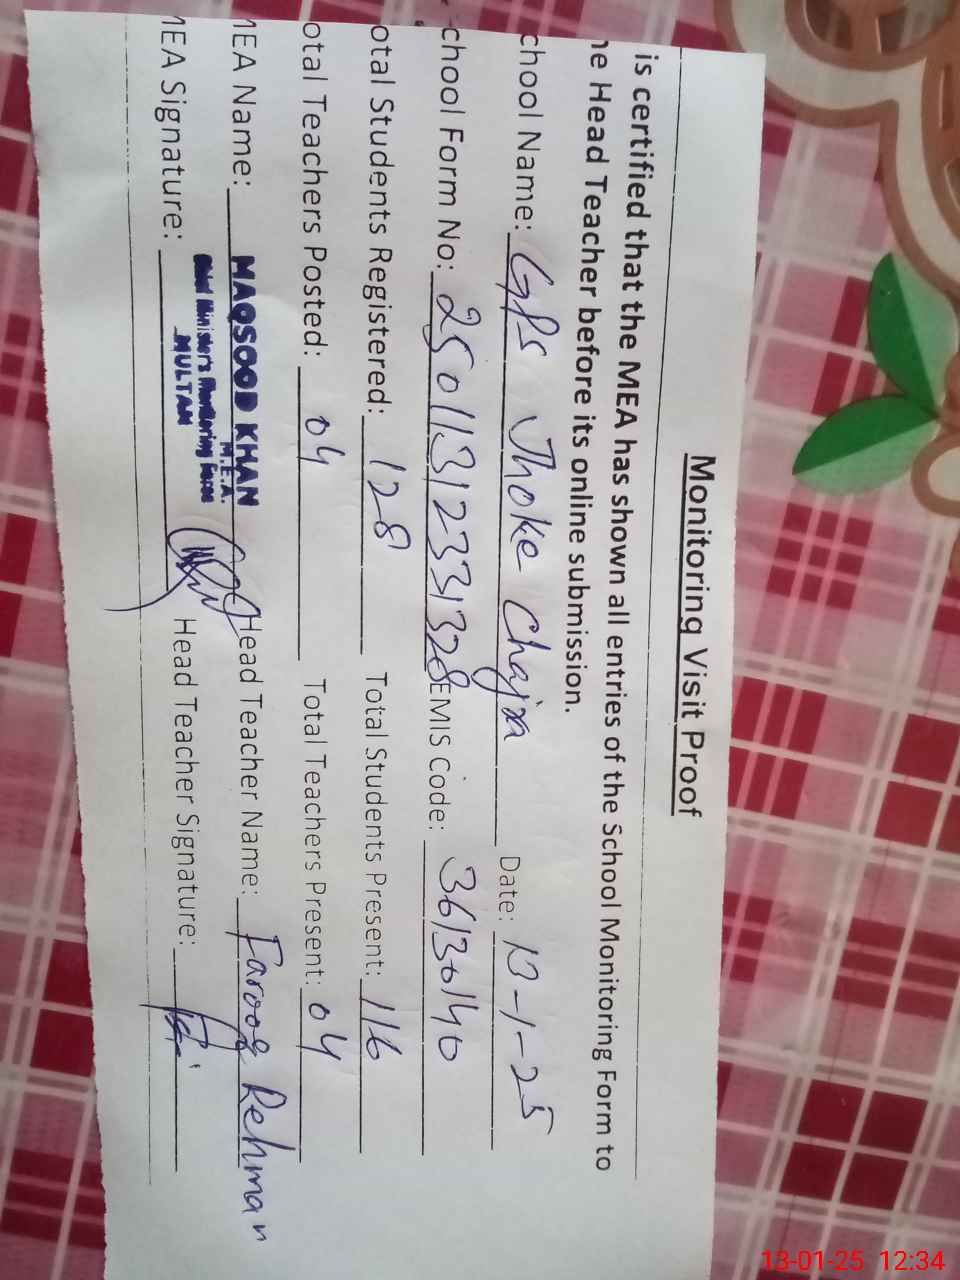 Monitoring Visit Proof
is certified that the MEA has shown all entries of the School Monitoring Form to
he Head Teacher before its online submission.
chool Name: GPS Jhoke Chajra Date: 13-1-25
chool Form No: 25011312331328 EMIS Code: 36130140
otal Students Registered: 128 Total Students Present: 116
otal Teachers Posted: 04 Total Teachers Present: 04
MEA Name: MAQSOOD KHAN Head Teacher Name: Farooq Rehman
M.E.A.
Chief Minister's Monitoring Force
MULTAN
MEA Signature: Head Teacher Signature:
13-01-25 12:34